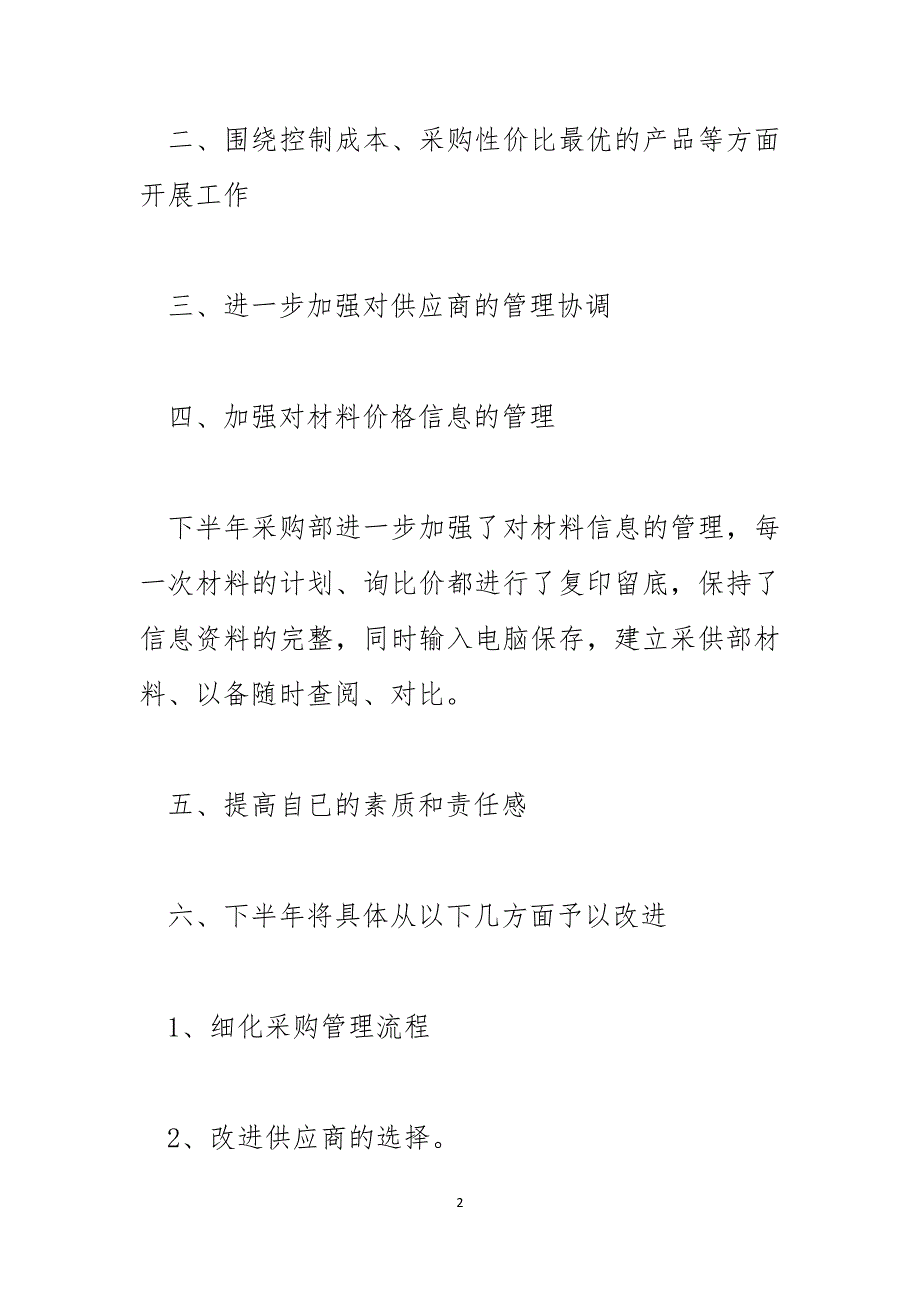 二、围绕控制成本、采购性价比最优的产品等方面
开展工作
三、进一步加强对供应商的管理协调
四、加强对材料价格信息的管理
下半年采购部进一步加强了对材料信息的管理，每
一次材料的计划、询比价都进行了复印留底，保持了
信息资料的完整，同时输入电脑保存，建立采供部材
料、以备随时查阅、对比。
五、提高自已的素质和责任感
六、下半年将具体从以下几方面予以改进
1、细化采购管理流程
2、改进供应商的选择。
2